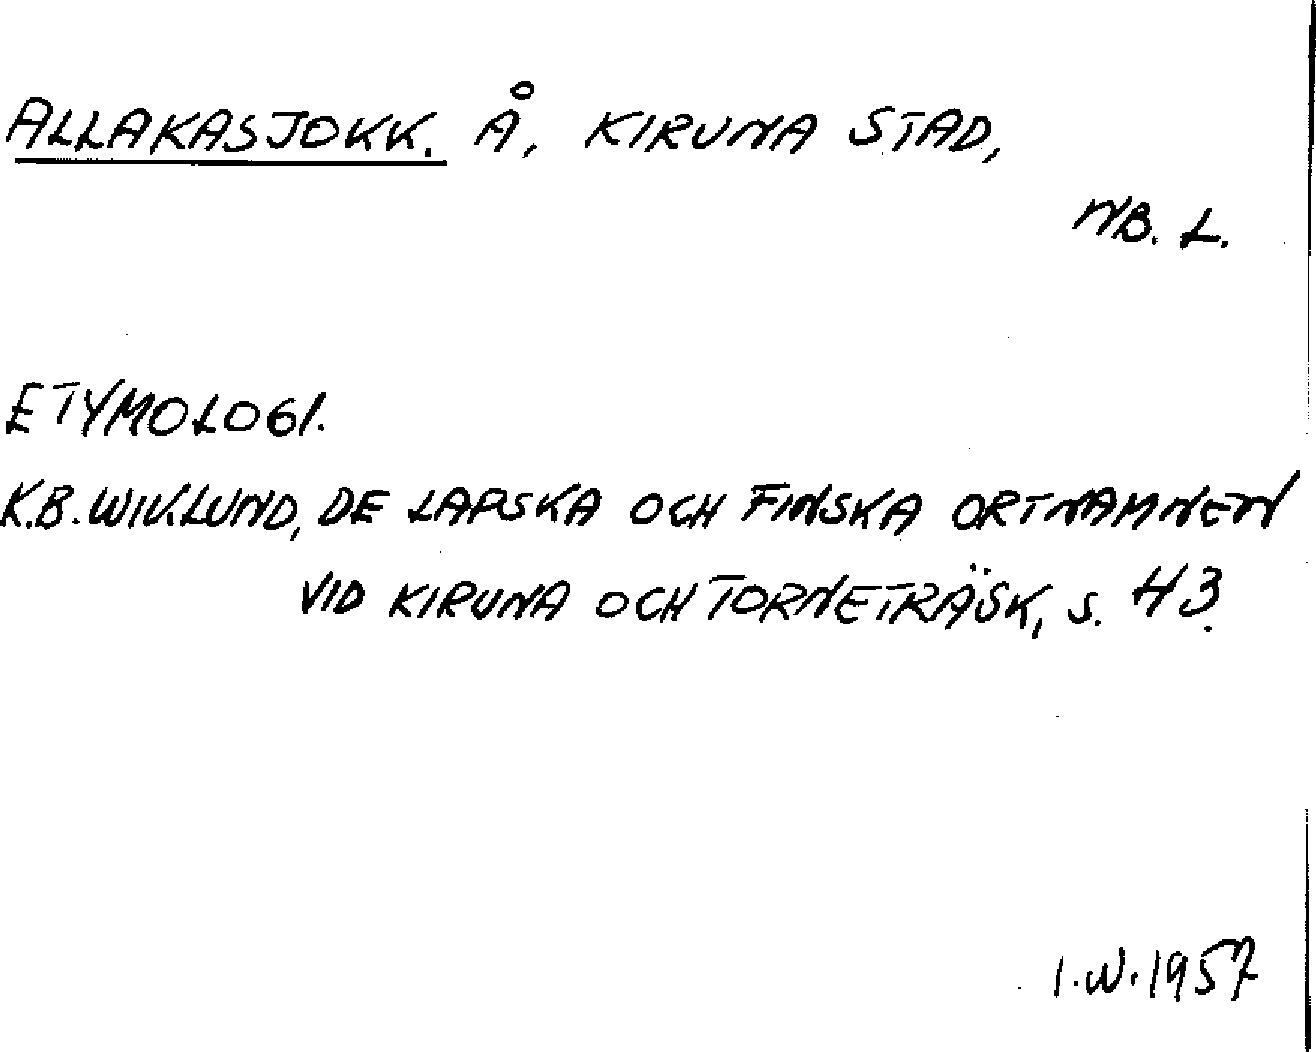 ALLAKASJOKK. Å, KIRUNA STAD,
NB. L.
ETYMOLOGI.
K.B. WIKLUND, DE LAPSKA OCH FINSKA ORTNAMNEN
VID KIRUNA OCH TORNETRÄSK, S. 43.
I.W. 1957